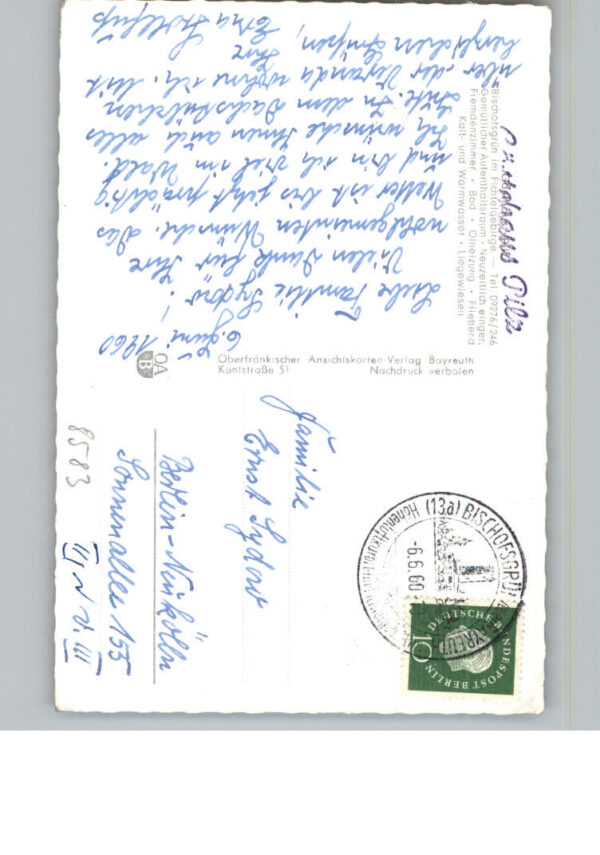 Gästehaus Pilz
Bischofsgrün im Fichtelgebirge — Tel. 09276/246
Gemütlicher Aufenthaltsraum · Neuzeitlich einger.
Fremdenzimmer • Bad • Ölheizung • Fließend
Kalt- und Warmwasser • Liegewiesen
6. Juni 1960
Liebe Familie Sydow!
Vielen Dank für Ihre
wohlgemeinten Wünsche. Das
Wetter ist bis jetzt prächtig
und bin ich viel im Wald.
Ich wünsche Ihnen auch alles
Gute. In dem Dachstübchen
über der Veranda wohne ich. Mit
herzlichen Grüßen,
Ihre
OA
B
Oberfränkischer Ansichtskarten-Verlag Bayreuth
Kantstraße 51 Nachdruck verboten
(13a) BISCHOFSGRÜN
-6.6.60
DEUTSCHE BUNDESPOST BERLIN
10
Familie
Ernst Sydow
Berlin-Neukölln
Sonnenallee 155
8583